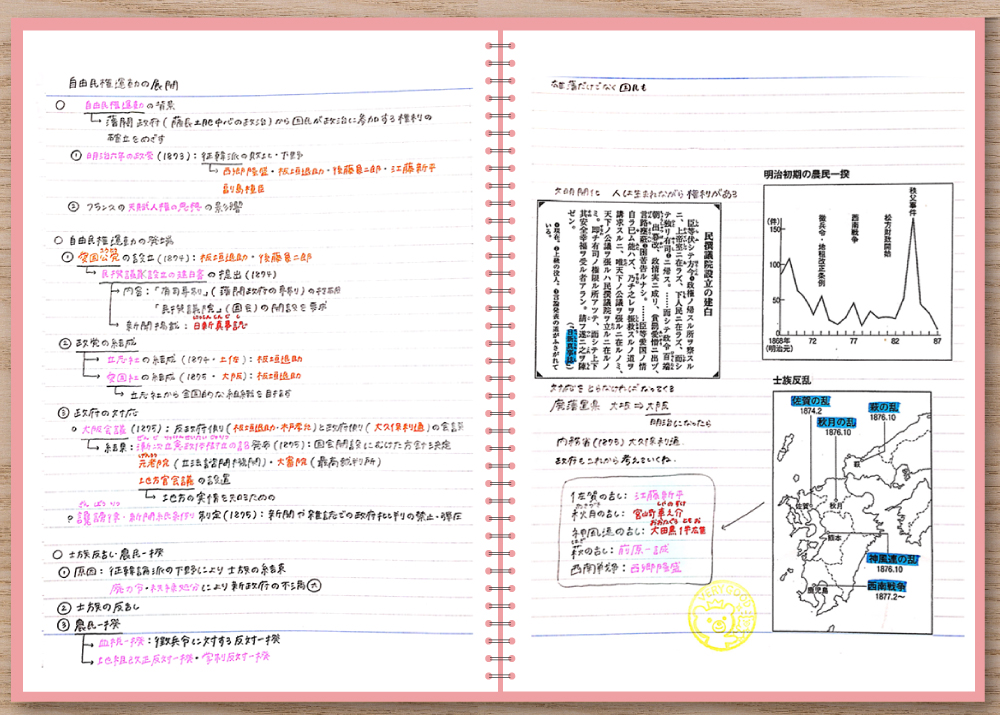 自由民権運動の展開
○ 自由民権運動の背景
藩閥政府(薩長土肥中心の政治)から国民が政治に参加する権利の
確立をめざす
① 明治六年の政変(1873): 征韓派の敗北・下野
西郷隆盛・板垣退助・後藤象二郎・江藤新平
副島種臣
② フランスの天賦人権の思想の影響
○ 自由民権運動の発端
① 愛国公党の設立(1874): 板垣退助・後藤象二郎
民撰議院設立の建白書の提出(1874)
内容:「有司専制」(藩閥政府の専制)の
「民撰議院」(国会)の開設を要求
新聞掲載: 日新真事誌
② 政党の結成
立志社の結成(1874・土佐): 板垣退助
愛国社の結成(1875・大阪): 板垣退助
立志社から全国的な組織を目指す
③ 政府の対応
大阪会議(1875): 反政府側(板垣退助・木戸孝允)と政府側(大久保利通)の会談
結果: 漸次立憲政体樹立の詔発表(1875): 国会開設にむけた方針決定
元老院(立法諮問機関)・大審院(最高裁判所)
地方官会議の設置
地方の実情を知るための
讒謗律・新聞紙条例制定(1875): 新聞や雑誌での政府批判の禁止・弾圧
○ 士族反乱・農民一揆
① 原因: 征韓論派の下野により士族の結束
廃刀令・秩禄処分により新政府の不満大
② 士族の反乱
③ 農民一揆
血税一揆: 徴兵令に対する反対一揆
地租改正反対一揆・学制反対一揆
雄藩だけでなく国民も
文明開化 人は生まれながら権利がある
民撰議院設立の建白
臣等伏シテ方今政権ノ帰スル所ヲ察スル
ニ、上帝室ニ在ラズ、下人民ニ在ラズ、而シ
テ独リ有司ニ帰ス。……而シテ政令百端
朝出暮改、政情実ニ成リ、賞罰愛憎ニ出ヅ、
言路壅蔽、困苦告ルナシ。……臣等愛国ノ情
自ラ已ム能ハズ、乃チ之レヲ振救スルノ道ヲ
講求スルニ、唯天下ノ公議ヲ張ルニ在ルノミ、
天下ノ公議ヲ張ルハ民撰議院ヲ立ルニ在ルノ
ミ。即チ有司ノ権限ル所アツテ、而シテ上下
其安全幸福ヲ受ル者アラン。請フ遂ニ之ヲ陳
ゼン。
(日新真事誌)
対応をとらなければなってくる
廃藩置県 大坂⇒大阪
明治になったら
内務省(1873) 大久保利通
政府もこれから考えていくね。
佐賀の乱: 江藤新平
秋月の乱: 宮崎車之介
神風連の乱: 太田黒伴雄
萩の乱: 前原一誠
西南戦争: 西郷隆盛
VERY GOOD
明治初期の農民一揆
(件)
150
100
50
0
徴兵令・地租改正条例
西南戦争
松方財政開始
秩父事件
1868年 72 77 82 87
(明治元)
士族反乱
佐賀の乱
1874.2
萩の乱
1876.10
秋月の乱
1876.10
萩
佐賀
秋月
熊本
神風連の乱
1876.10
鹿児島
西南戦争
1877.2~